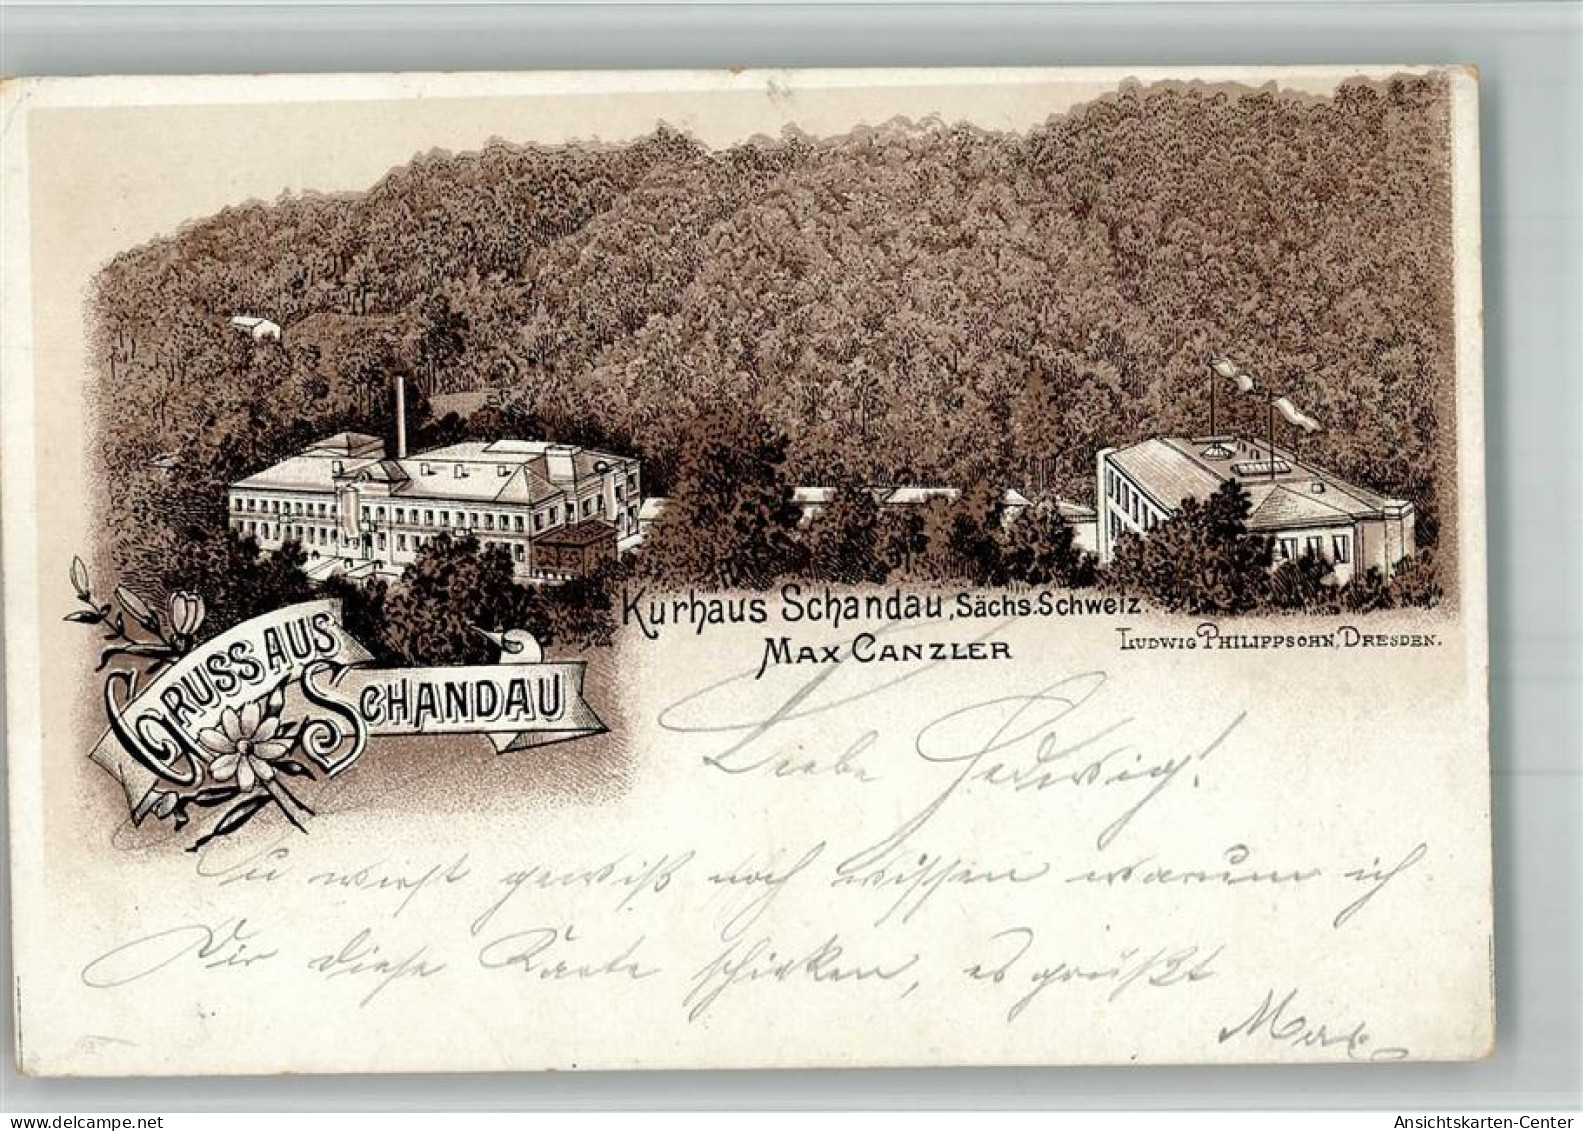 Kurhaus Schandau, Sächs. Schweiz.
Max Canzler
Ludwig Philippsohn, Dresden.
Gruss aus
Schandau
Liebe Hedwig!
Du wirst gewiß noch wissen warum ich
Dir diese Karte schicken, es grüßt
Max
delcampe.net
Ansichtskarten-Center